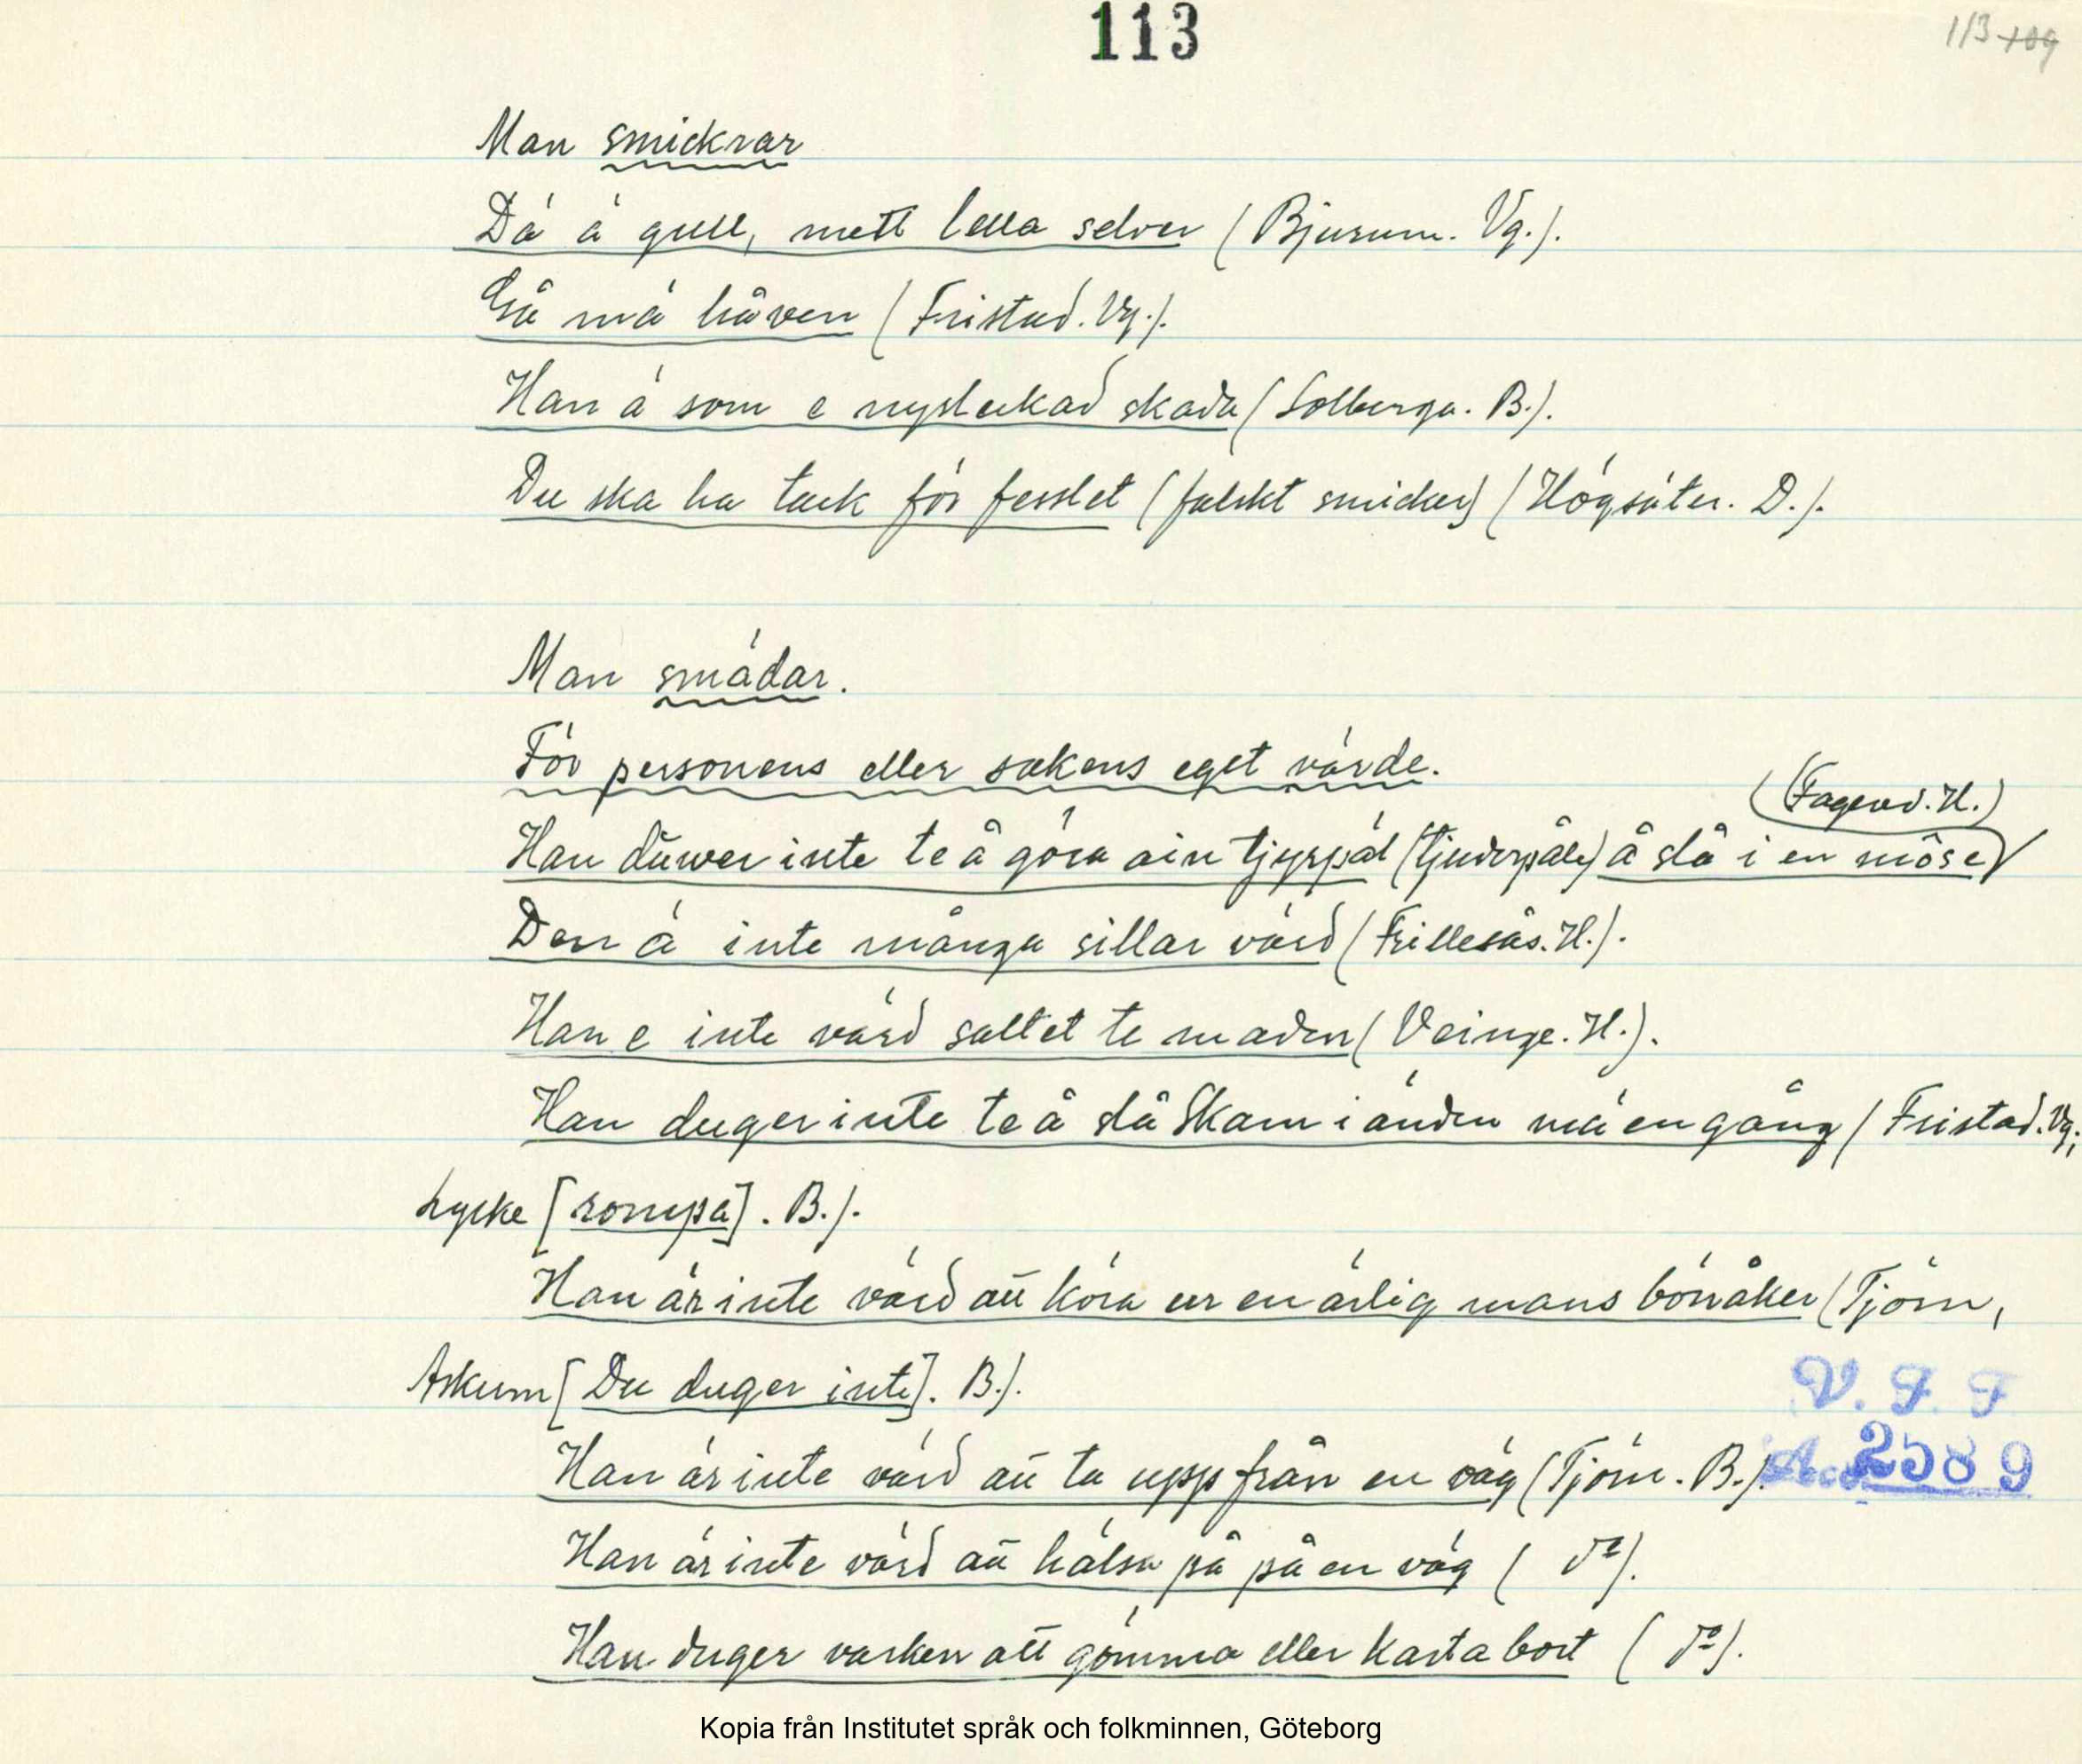 113
113 109
Man smickrar
Dä ä gull, mett lella selver (Bjurum. Vg.).
Gå mä håven (Fristad. Vg.).
Han ä som e nyslickad skada (Solberga. B.).
Du ska ha tack för fesslet (falskt smicker) (Högsäter. D.).
Man smädar.
För personens eller sakens eget värde.
(Fagered. H.)
Han duwer inte te å göra ain tjyrpål (tjuderpåle) å slå i en möse
Den ä inte många sillar värd (Frillesås. H.).
Han e inte värd saltet te maden (Veinge. H.).
Han duger inte te å slå Skam i änden mä en gång (Fristad. Vg.;
Lycke [rompa]. B.).
Han är inte värd att köra ur en ärlig mans bönåker (Tjörn,
Askum [Du duger inte]. B.).
V. F. F
Acc. 2589
Han är inte värd att ta upp från en väg (Tjörn. B.).
Han är inte värd att hälsa på på en väg ( do).
Han duger varken att gömma eller kasta bort ( do).
Kopia från Institutet språk och folkminnen, Göteborg